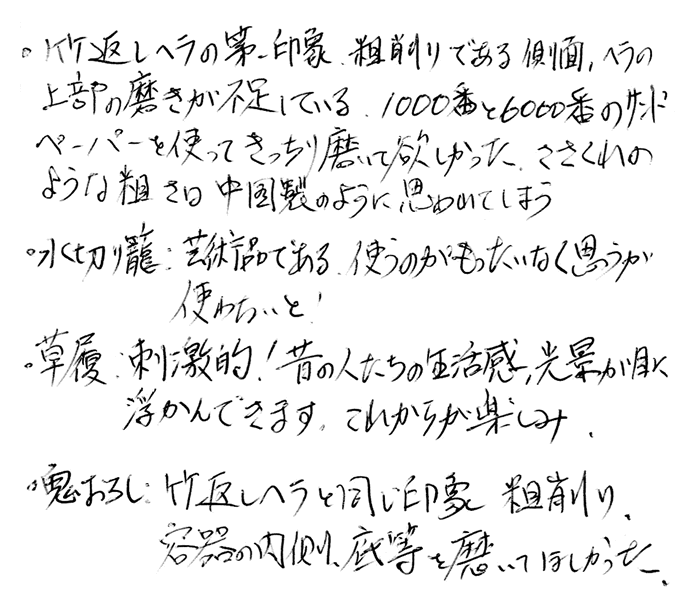 ・竹返しヘラの第一印象、粗削りである側面,ヘラの
上部の磨きが不足している、1000番と6000番のサンド
ペーパーを使ってきっちり磨いて欲しかった、ささくれの
ような粗さは中国製のように思われてしまう
・水切り籠:芸術品である、使うのがもったいなく思うが
使わないと!
・草履:刺激的!昔の人たちの生活感,光景が目に
浮かんできます。これからが楽しみ、
・鬼おろし:竹返しヘラと同じ印象 粗削り、
容器の内側、底等を磨いてほしかった、